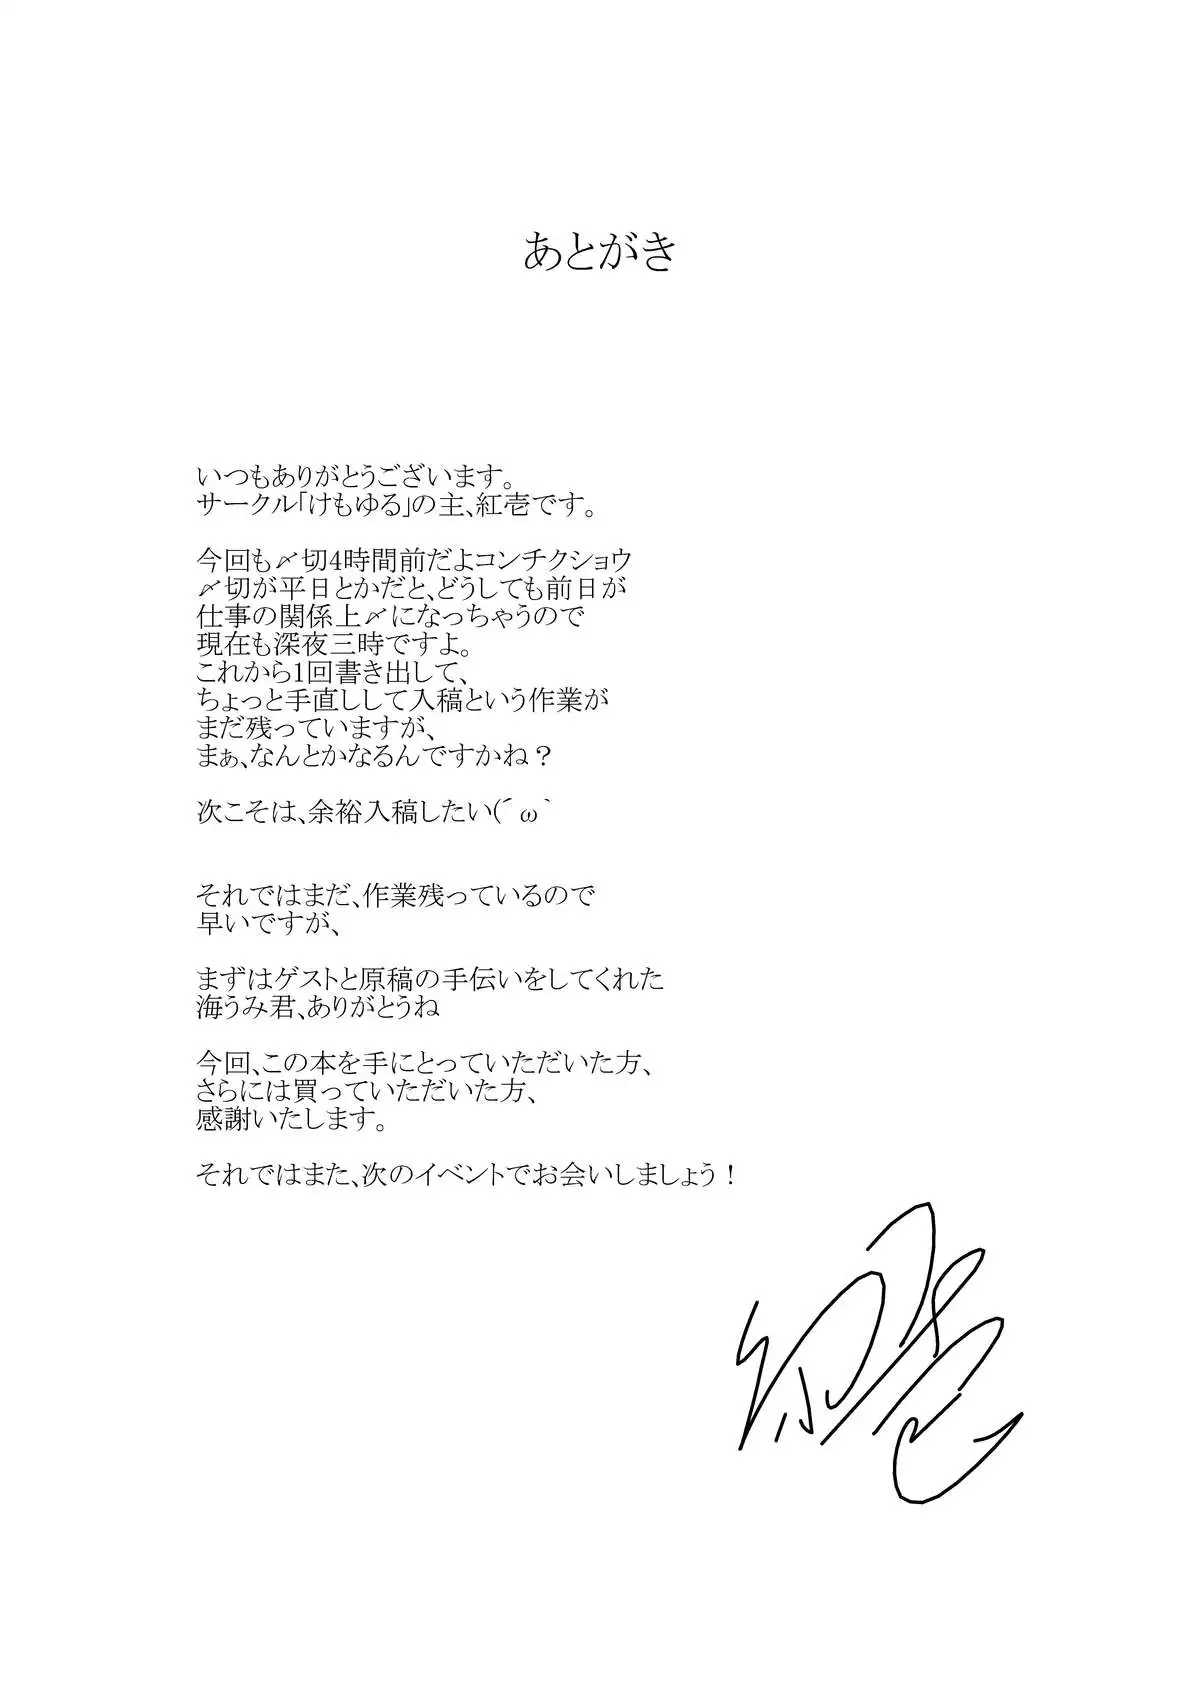 あとがき
いつもありがとうございます。
サークル「けもゆる」の主、紅壱です。
今回も〆切4時間前だよコンチクショウ
〆切が平日とかだと、どうしても前日が
仕事の関係上〆になっちゃうので
現在も深夜三時ですよ。
これから1回書き出して、
ちょっと手直しして入稿という作業が
まだ残っていますが、
まぁ、なんとかなるんですかね？
次こそは、余裕入稿したい(´ω｀
それではまだ、作業残っているので
早いですが、
まずはゲストと原稿の手伝いをしてくれた
海うみ君、ありがとうね
今回、この本を手にとっていただいた方、
さらには買っていただいた方、
感謝いたします。
それではまた、次のイベントでお会いしましょう！